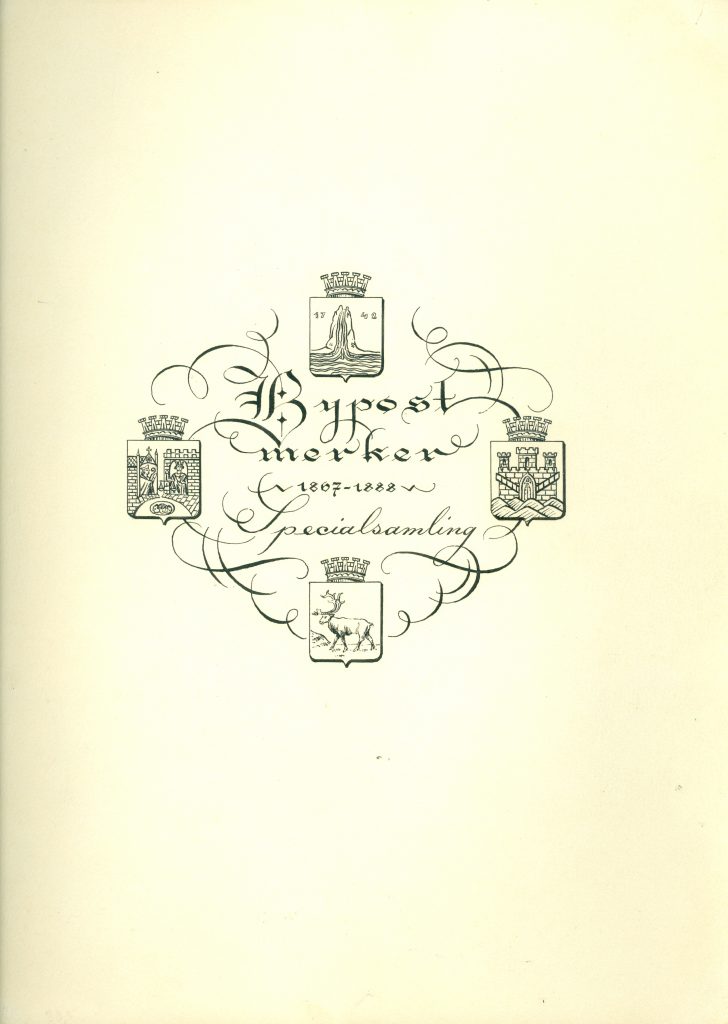 17 42
Bypost
merker
~1867-1888~
Specialsamling